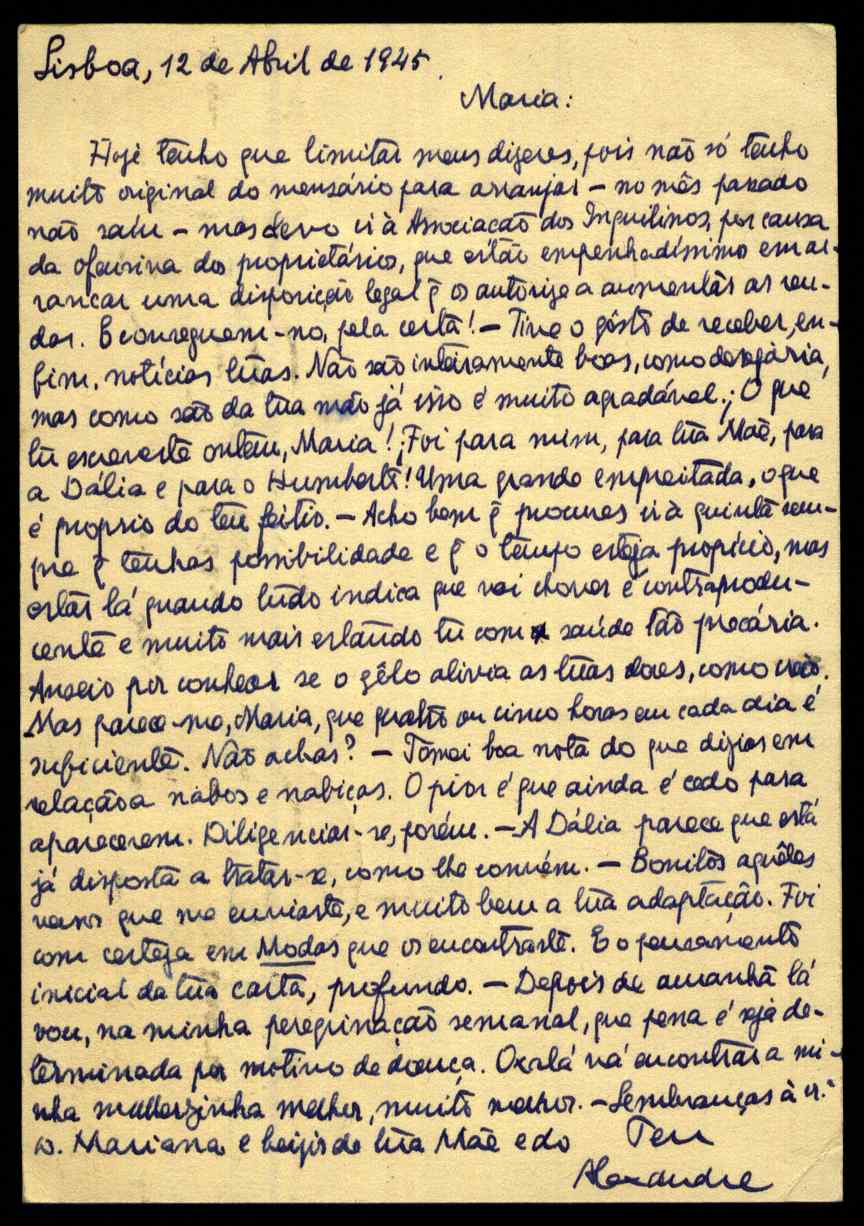 Lisboa, 12 de Abril de 1945.
Maria:
Hoje tenho que limitar meus dizeres, pois não só tenho
muito original do mensário para arranjar – no mês passado
não saíu – mas devo ir à Associação dos Inquilinos, por causa
da ofensiva dos proprietários, que estão empenhadíssimo em ar-
rancar uma disposição legal q̃ os autorize a aumentar as ren-
das. E conseguem-no, pela certa! – Tive o gôsto de receber, en-
fim, notícias tuas. Não são inteiramente boas, como desejaria,
mas como são da tua mão já isso é muito agradável. ¡O que
tu escreveste ontem, Maria! ¡Foi para mim, para tua Mãe, para
a Dália e para o Humberto! Uma grande empreitada, o que
é proprio do teu feitio. – Acho bem q̃ procures ir à quinta sem-
pre q̃ tenhas possibilidade e q̃ o tempo esteja propício, mas
estar lá quando tudo indica que vai chover é contraprodu-
cente e muito mais estando tu com saúde tão precária.
Anseio por conhecer se o gêlo alivia as tuas dores, como creio.
Mas parece-me, Maria, que quatro ou cinco horas em cada dia é
suficiente. Não achas? – Tomei boa nota do que dizias em
relação a nabos e nabiças. O pior é que ainda é cedo para
aparecerem. Diligenciar-se, porém. – A Dália parece que está
já disposta a tratar-se, como lhe convém. – Bonitos aquêles
versos que me enviaste, e muito bem a tua adaptação. Foi
com certeza em Modas que os encontraste. E o pensamento
inicial da tua carta, profundo. – Depois de amanhã lá
vou, na minha peregrinação semanal, que pena é seja de-
terminada por motivo de doença. Oxalá vá encontrar a mi-
nha mulherzinha melhor, muito melhor. – Lembranças à sr.ª
D. Mariana e beijos de tua Mãe e do Teu
Alexandre